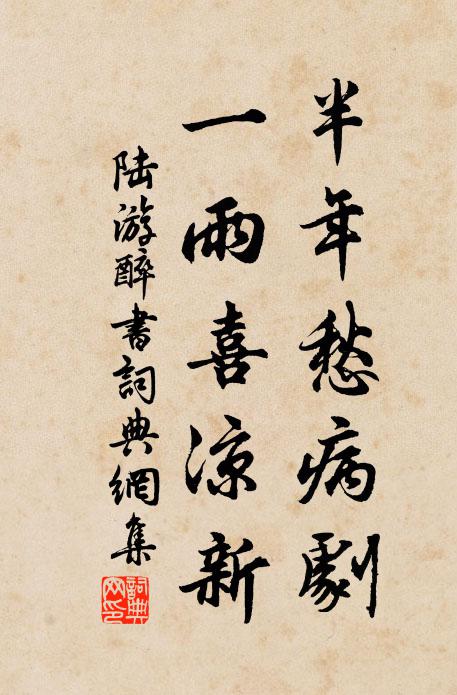 半年愁病劇
一雨喜涼新
陸游醉書詞典網集
詞典网印